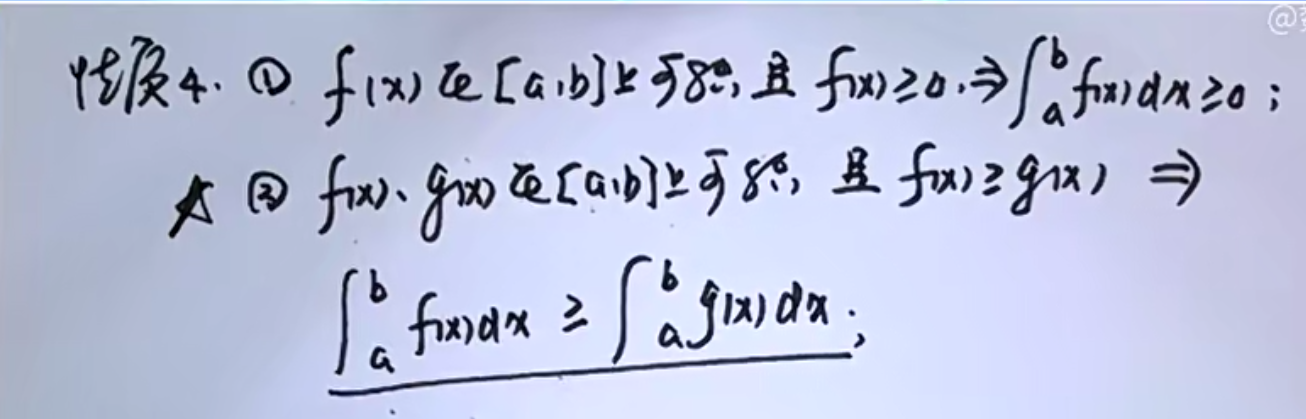 性质4. ① f(x)在[a,b]上可积, 且 f(x)≥0. ⇒ ∫ₐᵇ f(x)dx ≥ 0;
☆ ② f(x)、g(x)在[a,b]上可积, 且 f(x)≥g(x) ⇒
∫ₐᵇ f(x)dx ≥ ∫ₐᵇ g(x)dx.;